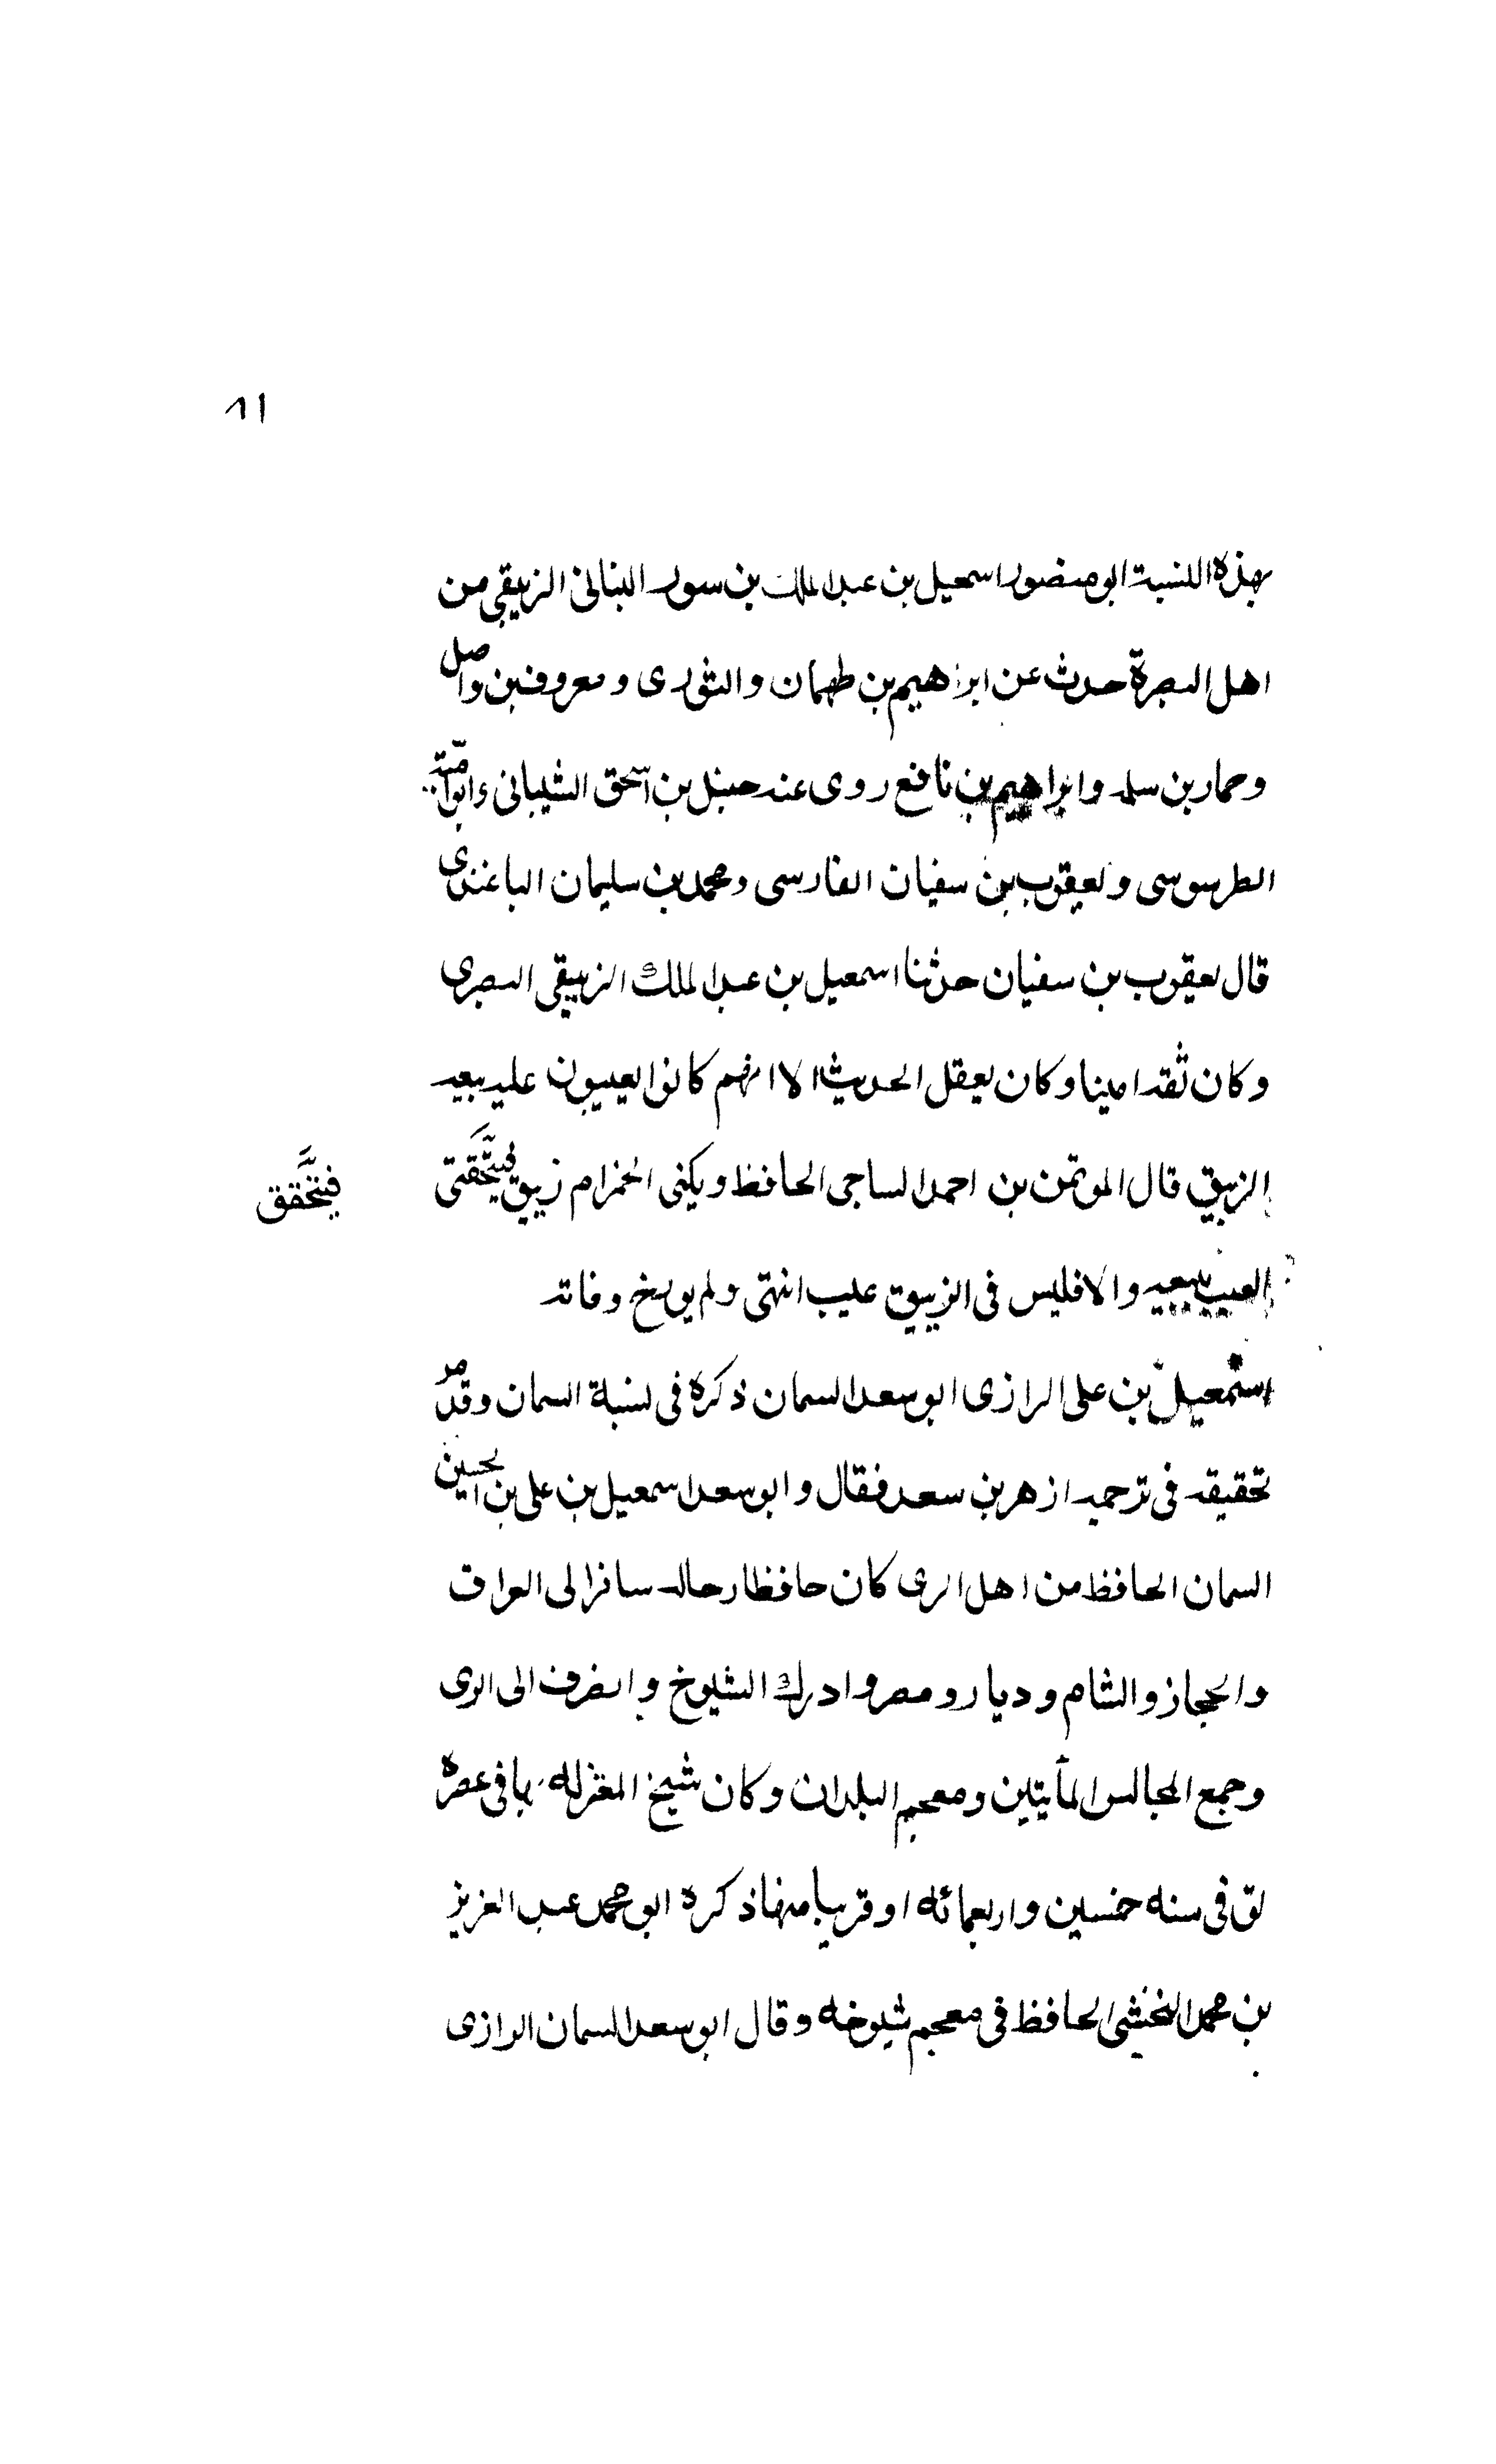 ٨١
بهذه النسبة ابو منصور اسمعيل بن عبد الملك بن سور البنانى الزيبقى من
اهل البصرة حدث عن ابراهيم بن طهمان والثورى ومعروف بن واصل
وحماد بن سلمه وابراهيم بن نافع روى عنه حنبل بن اسحق الشيبانى وابو امية
الطرسوسى ويعقوب بن سفيان الفارسى ومحمد بن سليمان الباغندى
قال يعقوب بن سفيان حدثنا اسمعيل بن عبد الملك الزيبقى البصرى
وكان ثقه امينا وكان يعقل الحديث الا انهم كانوا يعيبون عليه بيعه
الزيبق قال الموتمن بن احمد الساجى الحافظ ويكنى الخمر ام زيبق فيتحقق
فيتحقق
العيب ببيعه والا فليس فى الزيبق عيب انتهى ولم يورخ وفاته
اسمعيل بن على الرازى ابو سعد السمان ذكره فى نسبة السمان وقد مر
تحقيقه فى ترجمه ازهر بن سعد فقال وابو سعد اسمعيل بن على بن الحسين
السمان الحافظ من اهل الرى كان حافظا رحاله سافر الى العراق
والحجاز والشام وديار ومصر وادرك الشيوخ وانصرف الى الرى
وجمع المجالس المأيتين ومعجم البلدان وكان شيخ المعتزله بها فى عصره
توفى سنه خمسين واربعمائه او قريبا منها ذكره ابو محمد عبد العزيز
بن محمد النخشبى الحافظ فى معجم شيوخه وقال ابو سعد السمان الرازى